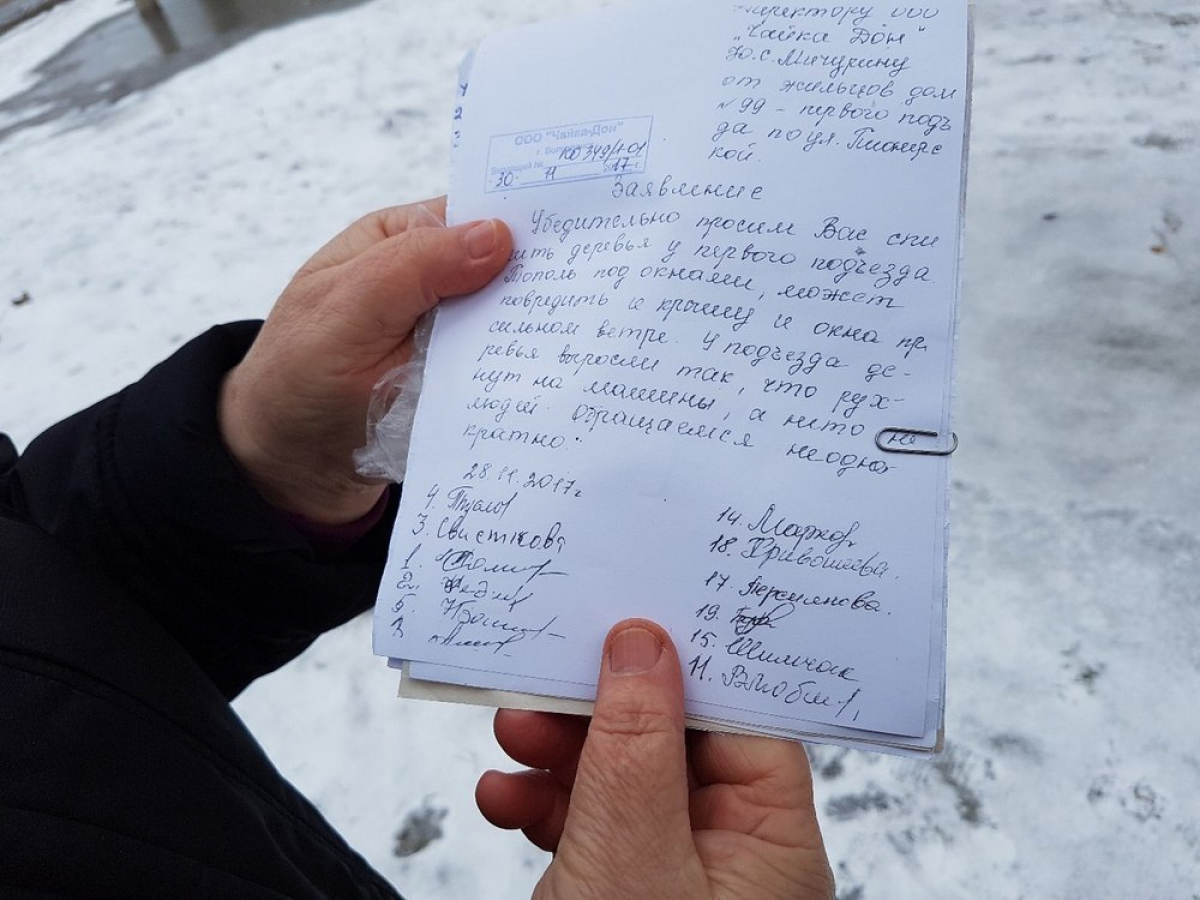 директору ООО
"Чайка Дон"
Ю.С. Мичурину
от жильцов дом
№99 - первого подъ
да по ул. Пионерс
кой.
ООО "Чайка-Дон"
30 11 2017 г.
Заявление
Убедительно просим Вас спи
лить деревья у первого подъезда.
Тополь под окнами, может
повредить и крышу и окна пр
сильном ветре. У подъезда де-
ревья выросли так, что рух-
нут на машины, а ни то не
людей. Обращаемся неодно-
кратно.
28.11.2017г
4.
3. Свисткова
1.
2.
5.
14. Марков
18. Кривошеева.
17. Персиянова.
19.
15. Шимчак
11.